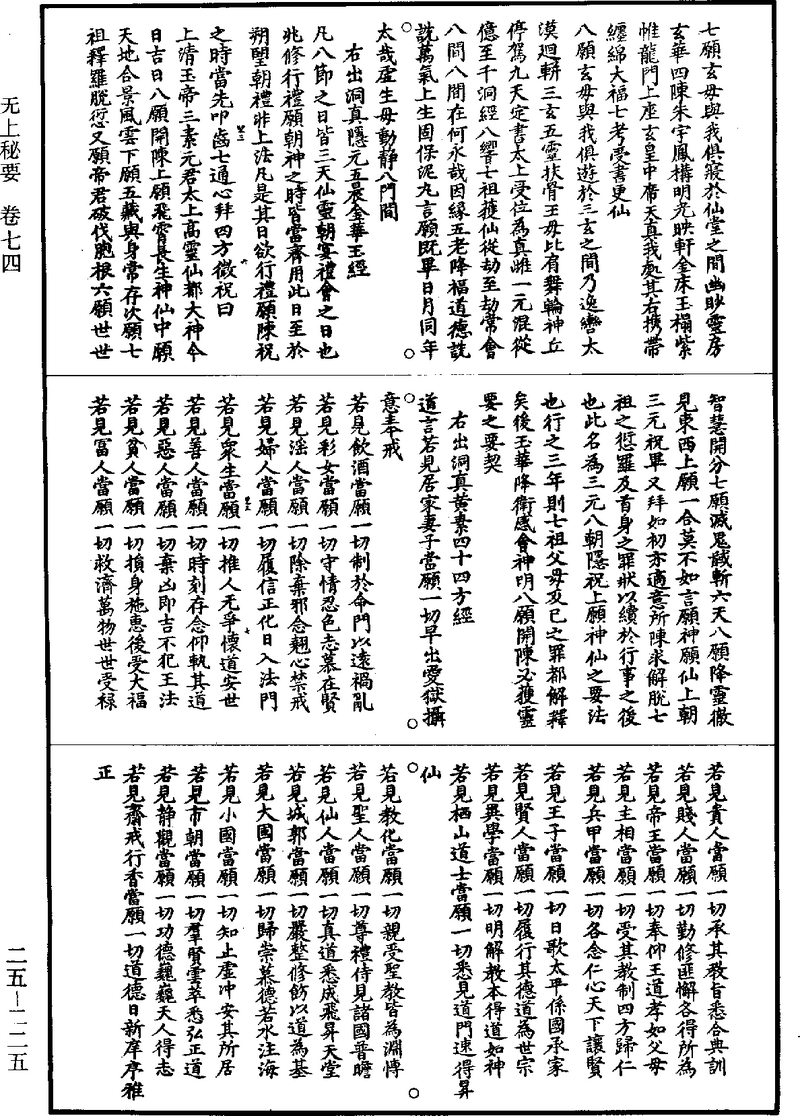 七願玄母與我俱寢於仙堂之間幽眇靈房
玄華四陳朱宇鳳構明光映軒金床玉榻紫
帷龍門上座玄皇中席天真我處其右攜帶
纏綿大福七考受書更仙
八願玄母與我俱遊於三玄之間乃逸轡太
漠迴軿三玄五靈扶胥王母比肩舞輪神丘
停駕九天定書太上受位為真雌一元混從
億至千洞經八響七祖獲仙從劫至劫常會
八間八間在何永哉因緣五老降福道德詵
詵萬氣上生固保泥丸言願既畢日月同年
太哉虛生母動靜八門間
右出洞真隱元五晨金華玉經
凡八節之日皆三天仙靈朝宴禮會之日也
兆修行禮願朝神之時皆當齊用此日至於
朔望朝禮非上法凡是其日欲行禮願陳祝
之時當先叩齒七通心拜四方微祝曰
上清玉帝三素元君太上高靈仙都大神今
日吉日八願開陳上願飛霄長生神仙中願
天地合景風雲下願五藏與身常存次願七
祖釋羅脫愆又願帝君破伐胞根六願世世
智慧開分七願滅鬼馘斬六天八願降靈徹
見東西上願一合莫不如言願神願仙上朝
三元祝畢又拜如初亦適意所陳求解脫七
祖之愆羅及首身之罪狀以續於行事之後
也此名為三元八朝隱祝上願神仙之要法
也行之三年則七祖父母及已之罪都解釋
矣後玉華降衛感會神明八願開陳必獲靈
要之要契
右出洞真黃素四十四方經
道言若見居家妻子當願一切早出愛獄攝
意奉戒
若見飲酒當願一切制於命門以遠禍亂
若見彩女當願一切守情忍色志慕在賢
若見淫人當願一切除棄邪念翹心禁戒
若見婦人當願一切履信正化日入法門
若見眾生當願一切推人无爭懷道安世
若見善人當願一切時刻存念仰軌其道
若見惡人當願一切棄凶即吉不犯王法
若見貧人當願一切損身施惠後受大福
若見冨人當願一切救濟萬物世世受祿
若見貴人當願一切承其教旨悉合典訓
若見賤人當願一切勤修匪懈各得所為
若見帝王當願一切奉仰王道孝如父母
若見主相當願一切受其教制四方歸仁
若見兵甲當願一切各念仁心天下讓賢
若見王子當願一切日歌太平係國承家
若見賢人當願一切履行其德道為世宗
若見異學當願一切明解教本得道如神
若見栖山道士當願一切悉見道門速得昇
仙
若見教化當願一切親受聖教皆為淵博
若見聖人當願一切尊禮侍見諸國普瞻
若見仙人當願一切真道悉成飛昇天堂
若見城郭當願一切嚴整修飭以道為基
若見大國當願一切歸崇慕德若水注海
若見小國當願一切知止虛冲安其所居
若見市朝當願一切羣賢雲萃悉弘正道
若見靜觀當願一切功德巍巍天人得志
若見齋戒行香當願一切道德日新庠序雅
正
无上秘要 卷七四
二五—二二五